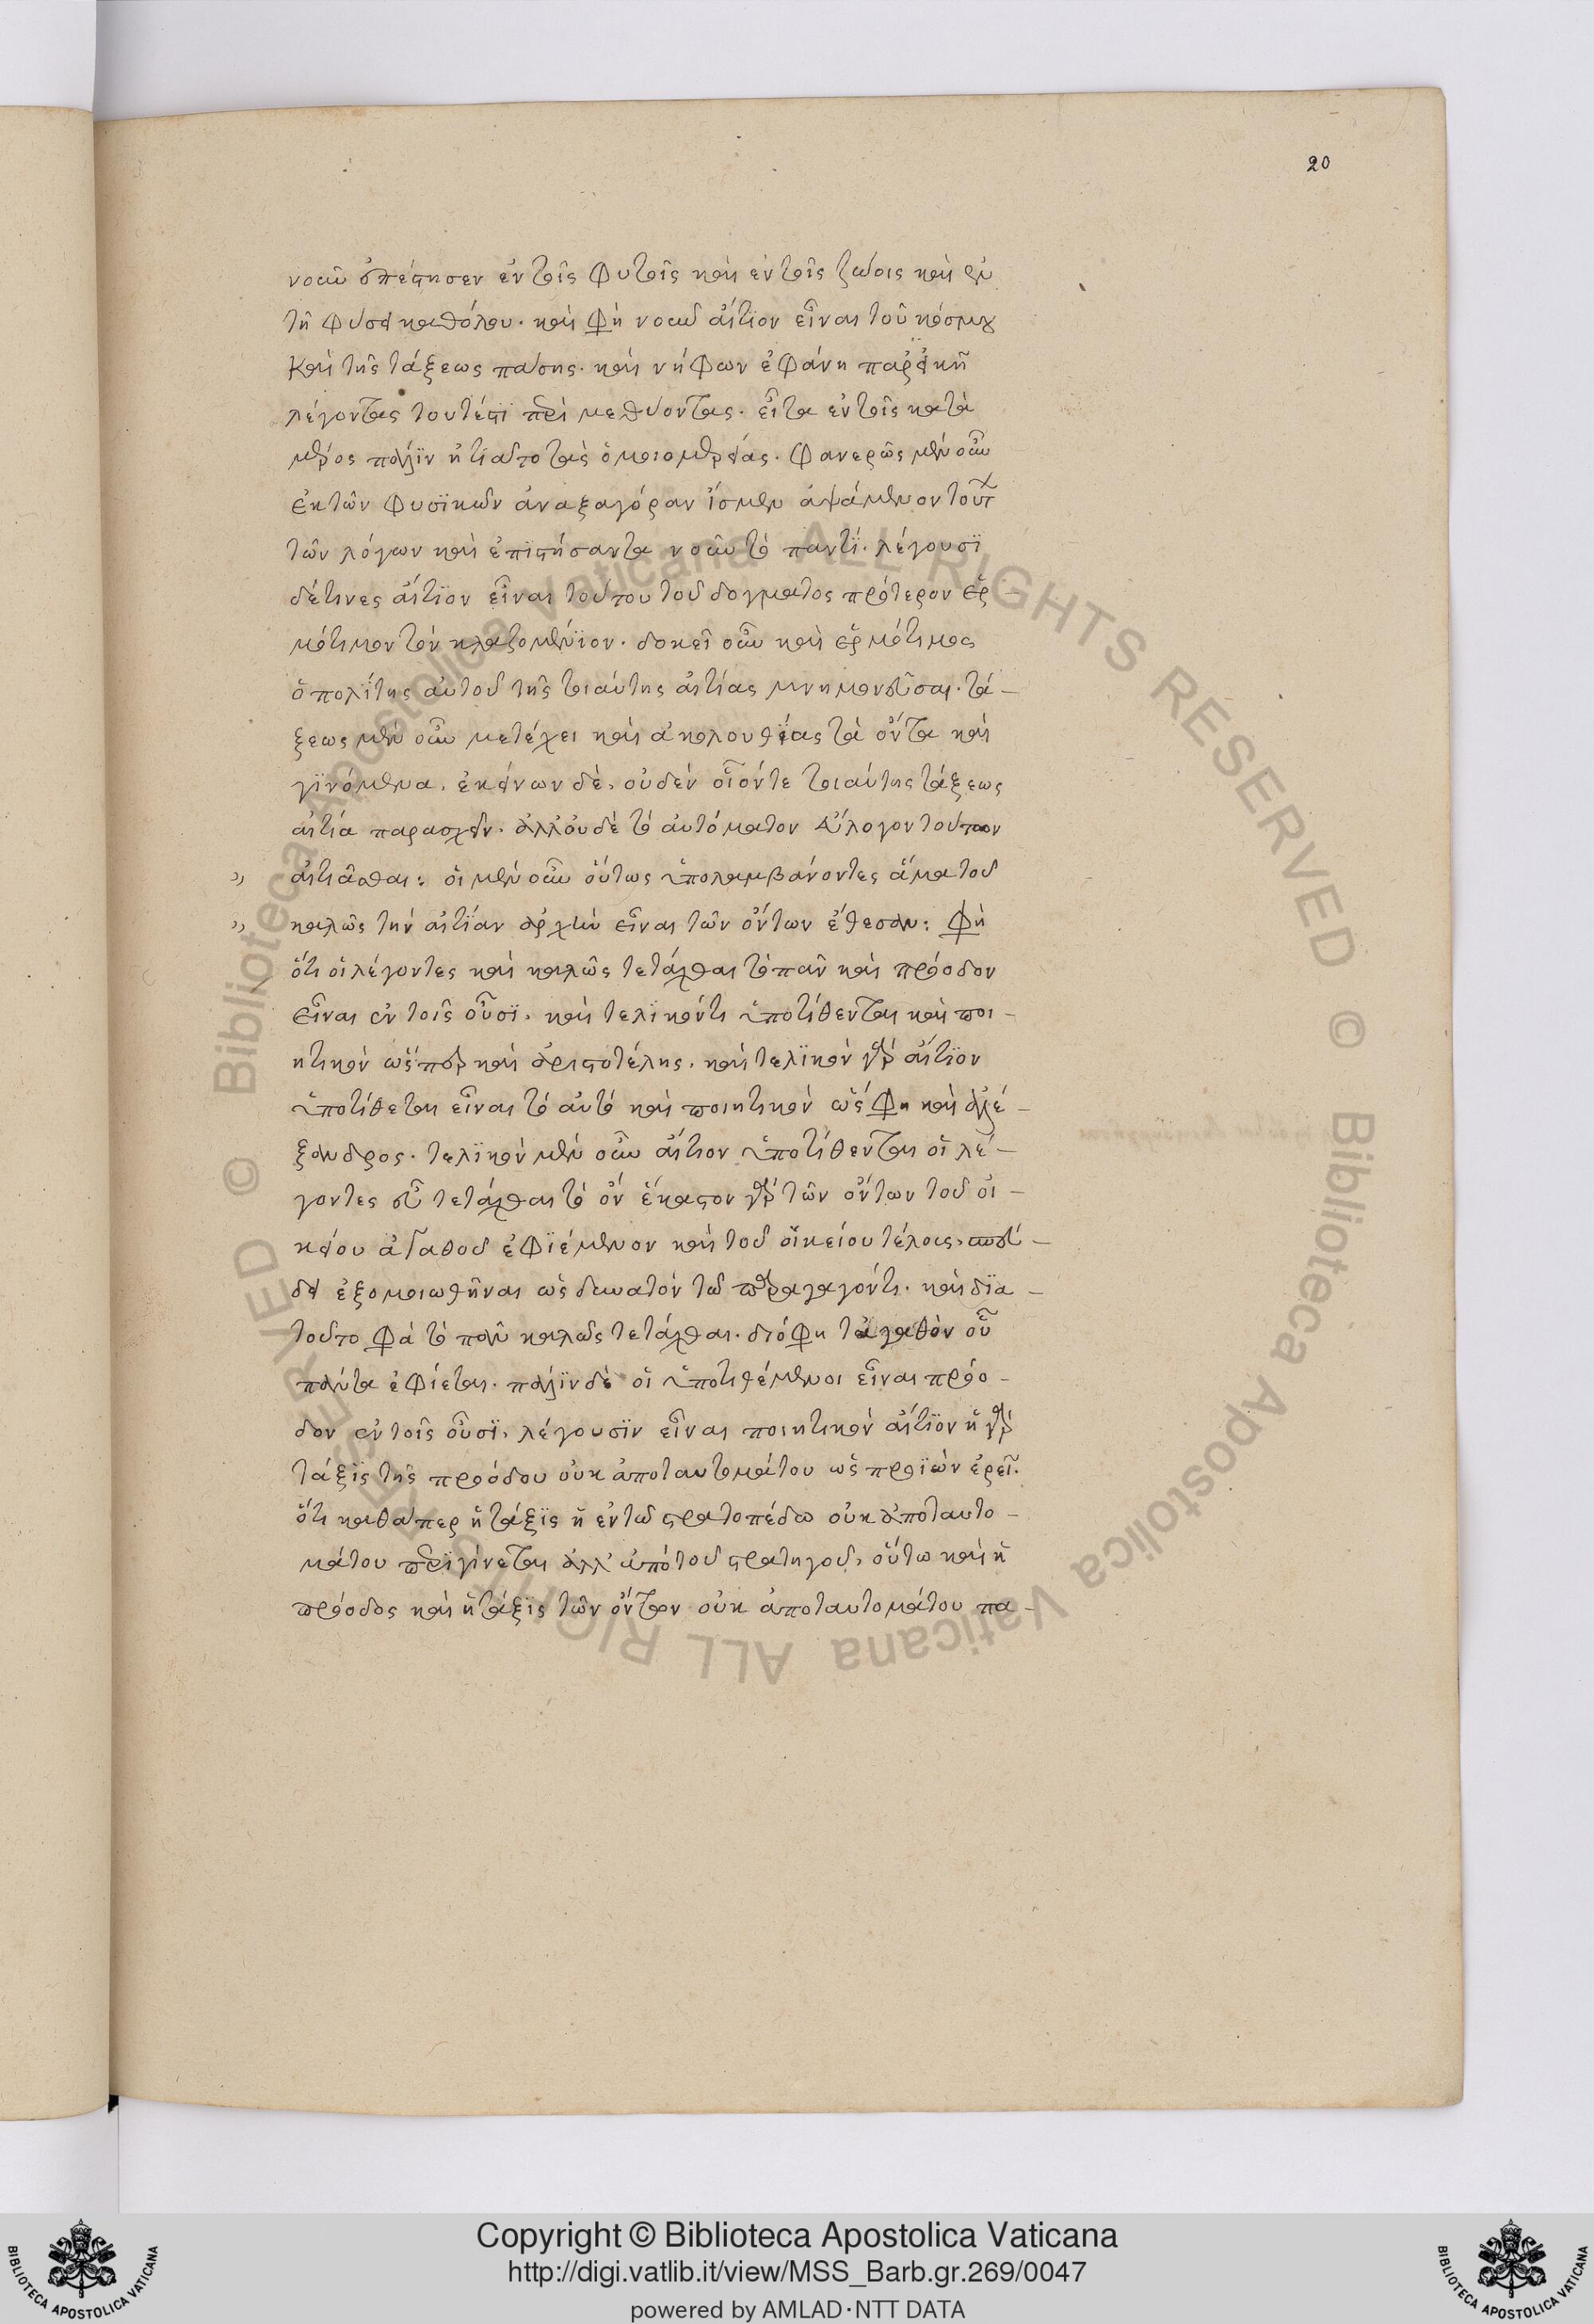 20
νοῦν ἐπέστησεν ἐν τοῖς φυτοῖς καὶ ἐν τοῖς ζώοις καὶ ἐν
τῆ φύσει καθόλου. καὶ φη νοῦν αἴτιον εἶναι τοῦ κόσμου
καὶ τῆς τάξεως πάσης. καὶ νήφων ἐφάνη παρ εἰκῆ
λέγοντας τουτέστι μεθύοντας. εἶτα ἐν τοῖς κατὰ
μέρος πάλιν ἠτιᾶτο τὰς ὁμοιομερείας. φανερῶς μὲν οὖν
ἐκ τῶν φυσικῶν ἀναξαγόραν ἴσμεν ἁψάμενον τούτ
τῶν λόγων καὶ ἐπιστήσαντα νοῦν τὸ παντί. λέγουσι
δέ τινες αἴτιον εἶναι τούτου τοῦ δόγματος πρότερον ἑρ-
μότιμον τὸν κλαζομένιον. δοκεῖ οὖν καὶ ἑρμότιμος
ὁ πολίτης αὐτοῦ τῆς τοιαύτης αἰτίας μνημονεῦσαι. τά-
ξεως μὲν οὖν μετέχει καὶ ἀκολουθίας τὰ ὄντα καὶ
γινόμενα. ἐκείνων δὲ, οὐδὲν οἷόν τε τοιαύτης τάξεως
αἰτία παρασχεῖν. ἀλλ οὐδὲ τὸ αὐτόματον εὔλογον τούτων
» αἰτιᾶσθαι: οἱ μὲν οὖν οὕτως ὑπολαμβάνοντες ἅμα τοῦ
» καλῶς τὴν αἰτίαν ἀρχὴν εἶναι τῶν ὄντων ἔθεσαν: φη
ὅτι οἱ λέγοντες καὶ καλῶς τετάχθαι τὸ πᾶν καὶ πρόοδον
εἶναι ἐν τοῖς οὖσι. καὶ τελικόν τι ὑποτίθενται καὶ ποι-
ητικὸν ὥσπερ καὶ ἀριστοτέλης. καὶ τελικὸν γὰρ αἴτιον
ὑποτίθεται εἶναι τὸ αὐτὸ καὶ ποιητικὸν ὥς φη καὶ ἀλέ-
ξανδρος. τελικὸν μὲν οὖν αἴτιον ὑποτίθενται οἱ λέ-
γοντες εὖ τετάχθαι τὸ ὄν ἕκαστον γὰρ τῶν ὄντων τοῦ οἰ-
κείου ἀγαθοῦ ἐφιέμενον καὶ τοῦ οἰκείου τέλους, σπεύ-
δει ἐξομοιωθῆναι ὡς δυνατὸν τῶ παραγαγόντι. καὶ δια-
τοῦτο φα τὸ πᾶν καλῶς τετάχθαι. διό φη τἀγαθὸν οὗ
πάντα ἐφίεται. πάλιν δὲ οἱ ὑποτιθέμενοι εἶναι πρόο-
δον ἐν τοῖς οὖσι, λέγουσιν εἶναι ποιητικὸν αἴτιον ἡ γὰρ
τάξις τῆς προόδου οὐκ ἀποταυτομάτου ὡς προϊὼν ἐρεῖ.
ὅτι καθάπερ ἡ τάξις ἡ ἐν τῶ στρατοπέδω οὐκ ἀποταυτο-
μάτου περιγίνεται ἀλλ ἀπὸ τοῦ στρατηγοῦ, οὕτω καὶ ἡ
πρόοδος καὶ ἡ τάξις τῶν ὄντων οὐκ ἀποταυτομάτου πα-
Biblioteca Apostolica Vaticana ALL RIGHTS RESERVED ©
Copyright © Biblioteca Apostolica Vaticana
http://digi.vatlib.it/view/MSS_Barb.gr.269/0047
powered by AMLAD·NTT DATA
BIBLIOTECA APOSTOLICA VATICANA
BIBLIOTECA APOSTOLICA VATICANA